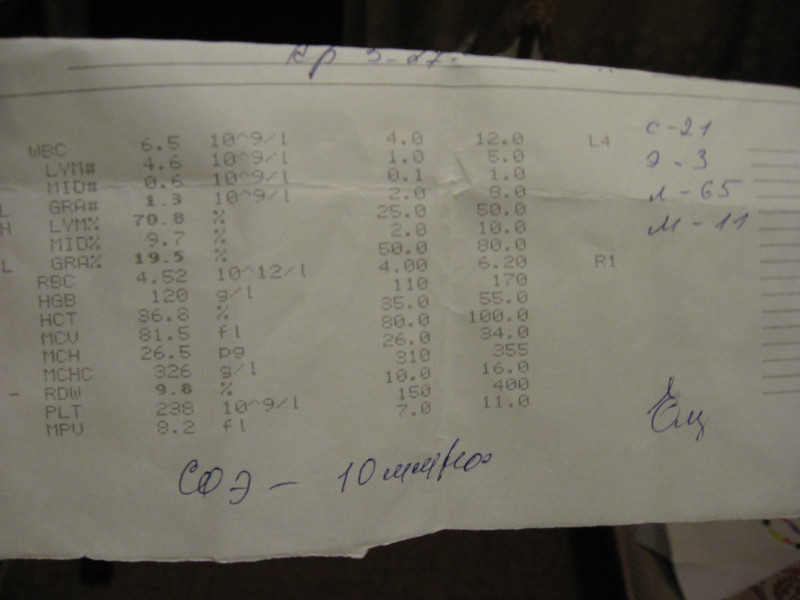 кр 5-27.
WBC 6.5 10^9/l 4.0 12.0 L4 с-21
LYM# 4.6 10^9/l 1.0 5.0 э-3
MID# 0.6 10^9/l 0.1 1.0 л-65
L GRA# 1.3 10^9/l 2.0 8.0 м-11
H LYM% 70.8 % 25.0 50.0
MID% 9.7 % 2.0 10.0
L GRA% 19.5 % 50.0 80.0
RBC 4.52 10^12/l 4.00 6.20 R1
HGB 120 g/l 110 170
HCT 36.8 % 35.0 55.0
MCV 81.5 fl 80.0 100.0
MCH 26.5 pg 26.0 34.0
MCHC 326 g/l 310 355
- RDW 9.8 % 10.0 16.0
PLT 238 10^9/l 150 400
MPV 8.2 fl 7.0 11.0
СОЭ - 10 мм/час